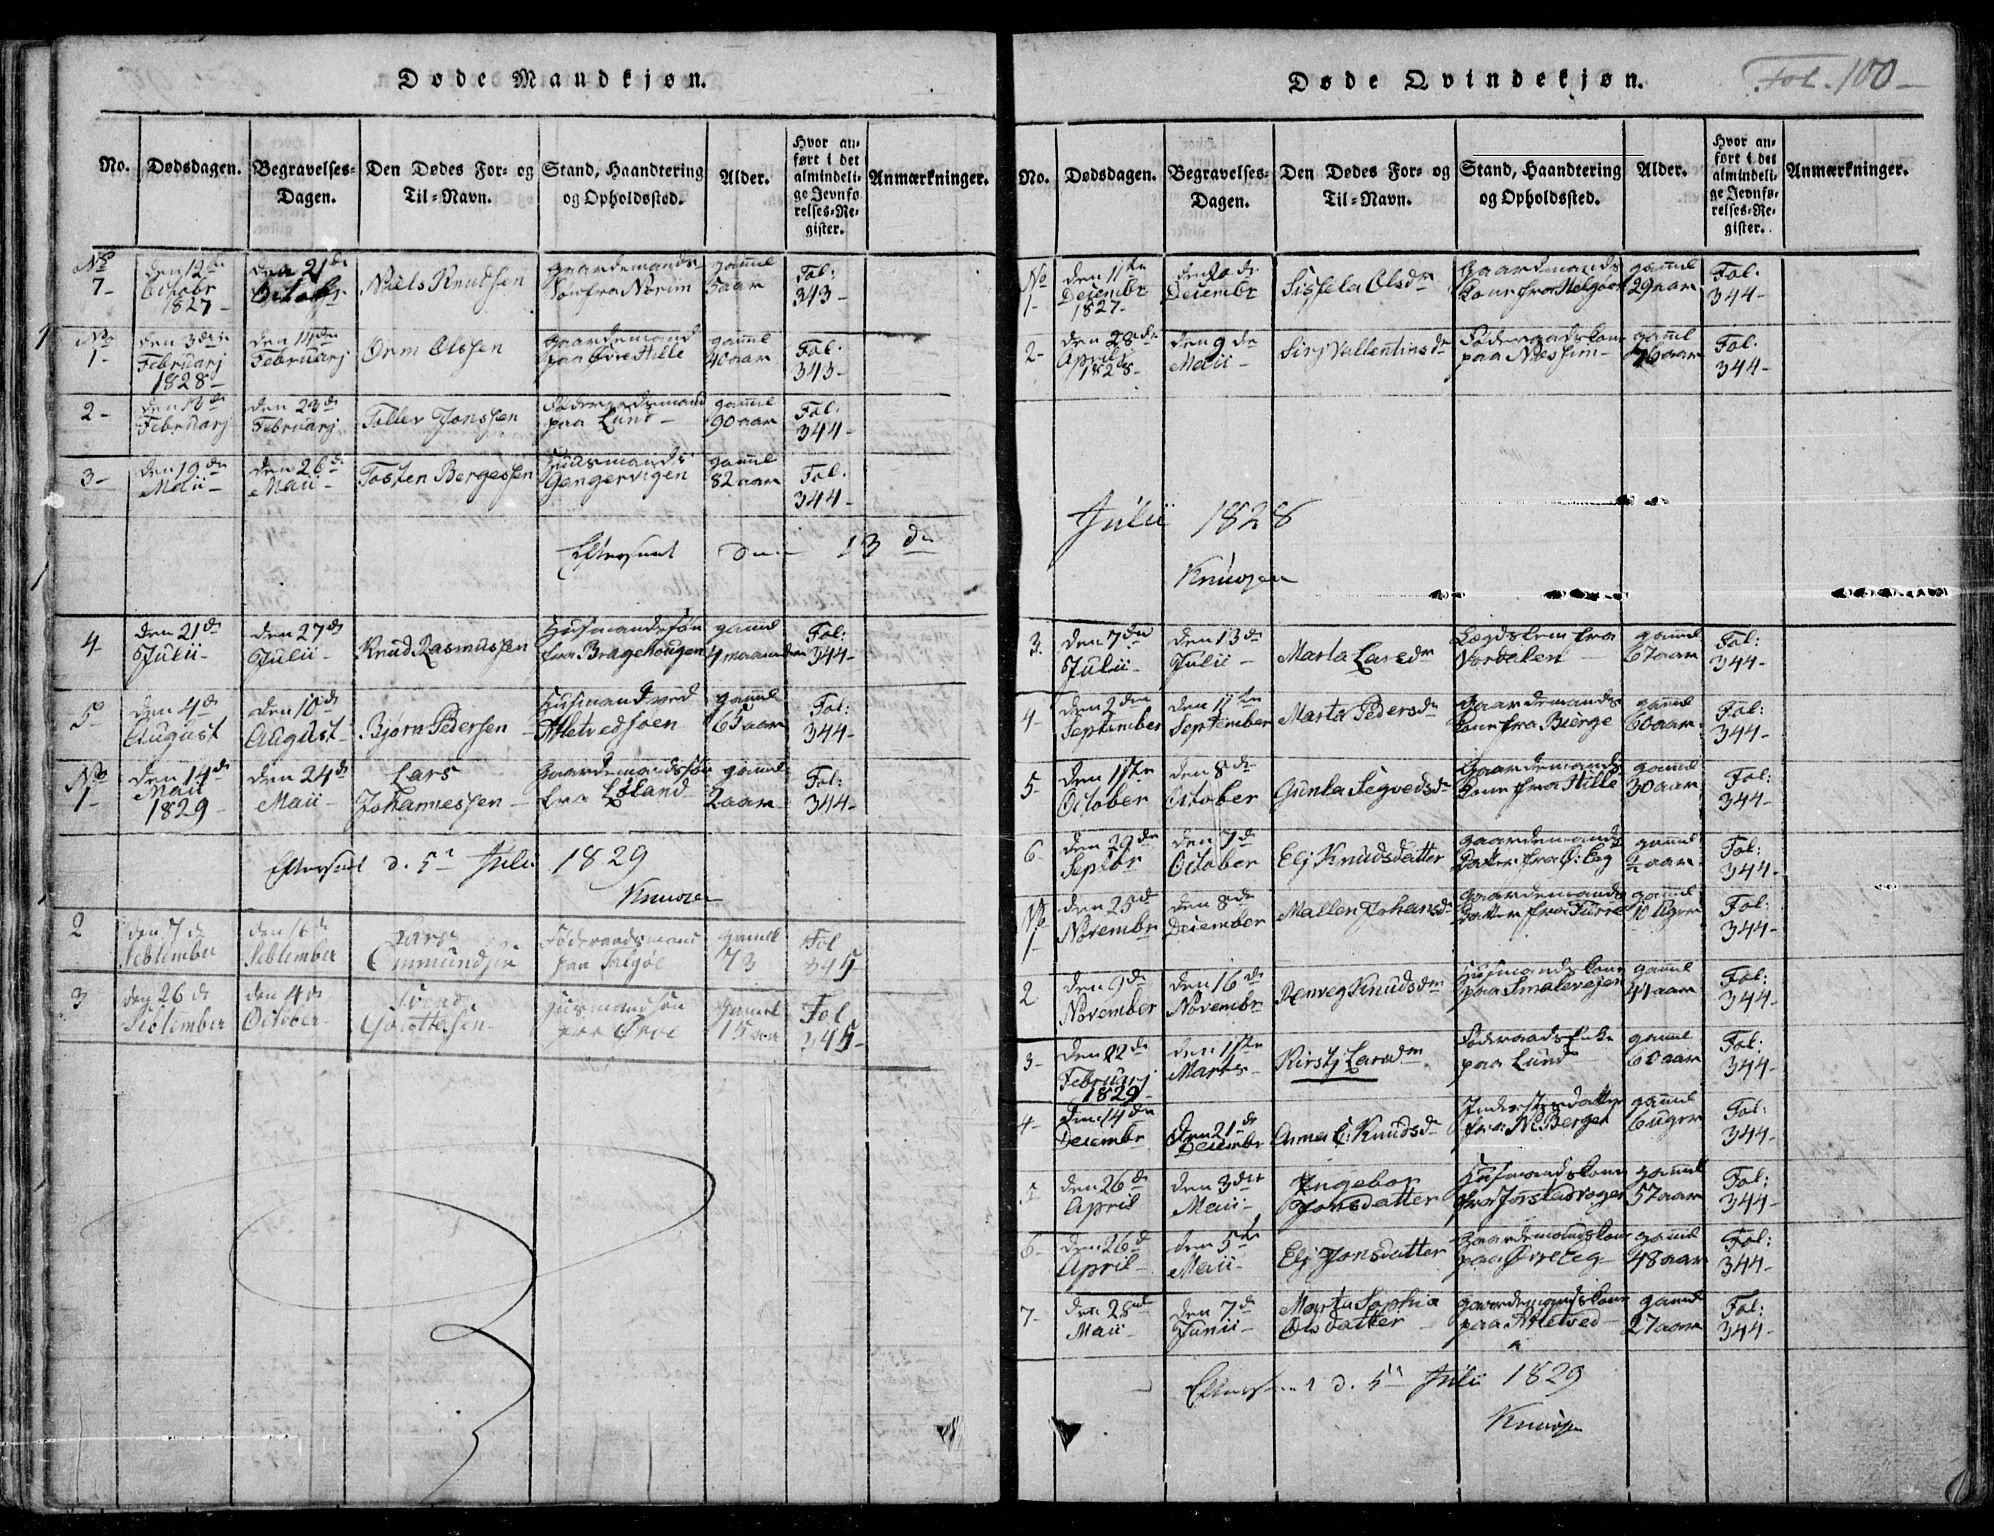 Døde Mandkjøn.
No. Dødsdagen. Begravelses-Dagen. Den Dødes For- og Til-Navn. Stand, Haandtering og Opholdssted. Alder. Hvor anført i det almindelige Jevnførelses-Register. Anmærkninger.
No 7- den 12te Octobr 1827 den 21de Octobr Niels Knudsen gaardemands Søn fra Noriim gammel 5 aar Fol: 343-
No 1- den 3die Februarj 1828- den 14de Februarj Orm Olssen gaardemand paa Øvre Hille gammel 40 aar Fol: 343-
2- den 13de Februarj den 23de Februarj Tollev Jonssen Føderaadsmand paa Lund- gammel 90 aar Fol. 344-
3- den 19de Maii- den 26de Maii- Tosten Bergessen Huusmands Gangervigen gammel 82 aar Fol. 344-
Efterseet den 13de
4- den 21de Julii- den 27de Julii- Knud Rasmussen Husmandssøn fra Bragehougen gammel 4 maaneder Fol: 344-
5- den 4de August den 10de August- Bjørn Pedersen Husmand ved Atletvedsøen gammel 65 aar Fol: 344-
No 1- den 14de Maii 1829- den 24de Maii- Lars Johannessen- gaardemandssøn fra Løland- gammel 2 aar Fol: 344-
Efterseet d. 5te Juli 1829
Knudsen
2 den 7de September den 16de September Lars Ommundsen Føderaadsmand paa gammel 73 Fol 345-
3 den 26de September den 4de October- Svend husmandsøn gammel 15 aar Fol 345-
Døde Qvindekjøn.
Fol. 100-
No. Dødsdagen. Begravelses-Dagen. Den Dødes For- og Til-Navn. Stand, Haandtering og Opholdssted. Alder. Hvor anført i det almindelige Jevnførelses-Register. Anmærkninger.
No 1- den 11te Decembr 1827- den 20de Decembr Sissela Olsdr gaardemands kone fra Helgøen 29 aar Fol. 344-
2- den 28de April 1828- den 9de Maii- Sirj Vallentinsdr Føderaadskone paa gammel 76 aar Fol. 344-
Julii 1828
Knudsen
3. den 7de Julii- den 13de Julii- Marta Larsdr Lægdslem fra Nordalen- gammel 67 aar Fol: 344-
4- den 2den September den 11te September Marta Pedersdr gaardemands kone fra Bierge gammel 60 aar Fol: 344-
5- den 1ste October den 8de October Gunla Segvedsdr gaardemands kone fra Hille gammel 30 aar Fol: 344-
6- den 29de Septbr den 7de October Elj Knudsdatter gaardemands datter fra Ø: Eeg gammel ½ aar Fol: 344-
No 1- den 25de Novembr den 8de Decembr Mallen Johansdr gaardemands datter fra Furre gammel 10 Uger Fol: 344-
2. den 9de November den 16de Novembr Renveg Knudsdr Husmandskone paa Smalevejen gammel 41 aar Fol: 344-
3- den 22de Februarj 1829- den 11te Marts- Kirstj Larsdr Føderaads Enke paa Lund- gammel 60 aar Fol: 344-
4- den 14de Decembr den 21de Decembr Anna C: Knudsdr Inderstesdatter fra N: Berger gammel 6 uger Fol: 344-
5- den 26de April den 3die Maii- Ingebor Jonsdatter Husmandskone fra gammel 57 aar Fol: 344-
6- den 26de April- den 5te Maii- Elj Jonsdatter gaardemandskone paa Øvreeeg- gammel 48 aar Fol: 344-
7- den 28de Maii- den 7de Junii- Marta Sophia Olsdatter gaardemandskone paa Atletved- gammel 27 aar Fol: 344-
Efterseet d. 5te Julii 1829
Knudsen